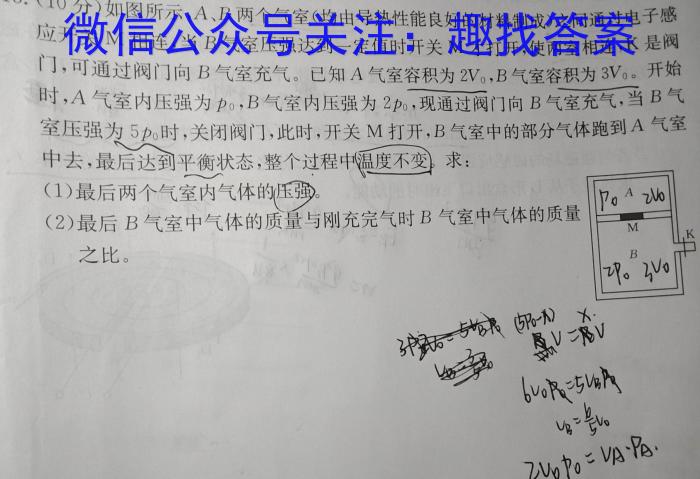 (10分)如图所示,A、B两个气室(均由导热性能良好的材料制成)
微信公众号关注：趣找答案
门,可通过阀门向B气室充气。已知A气室容积为2V₀,B气室容积为3V₀。开始
时,A气室内压强为p₀,B气室内压强为2p₀,现通过阀门向B气室充气,当B气
室压强为5p₀时,关闭阀门,此时,开关M打开,B气室中的部分气体跑到A气室
中去,最后达到平衡状态,整个过程中温度不变。求:
(1)最后两个气室内气体的压强。
(2)最后B气室中气体的质量与刚充完气时B气室中气体的质量
之比。
P₀ A 2V₀
M
K
B
2P₀ 3V₀
(5P₀-X) X
6V₀P₀=5V_BP₀
V_B=6/5V₀
2V₀P₀=V_A·P_A.